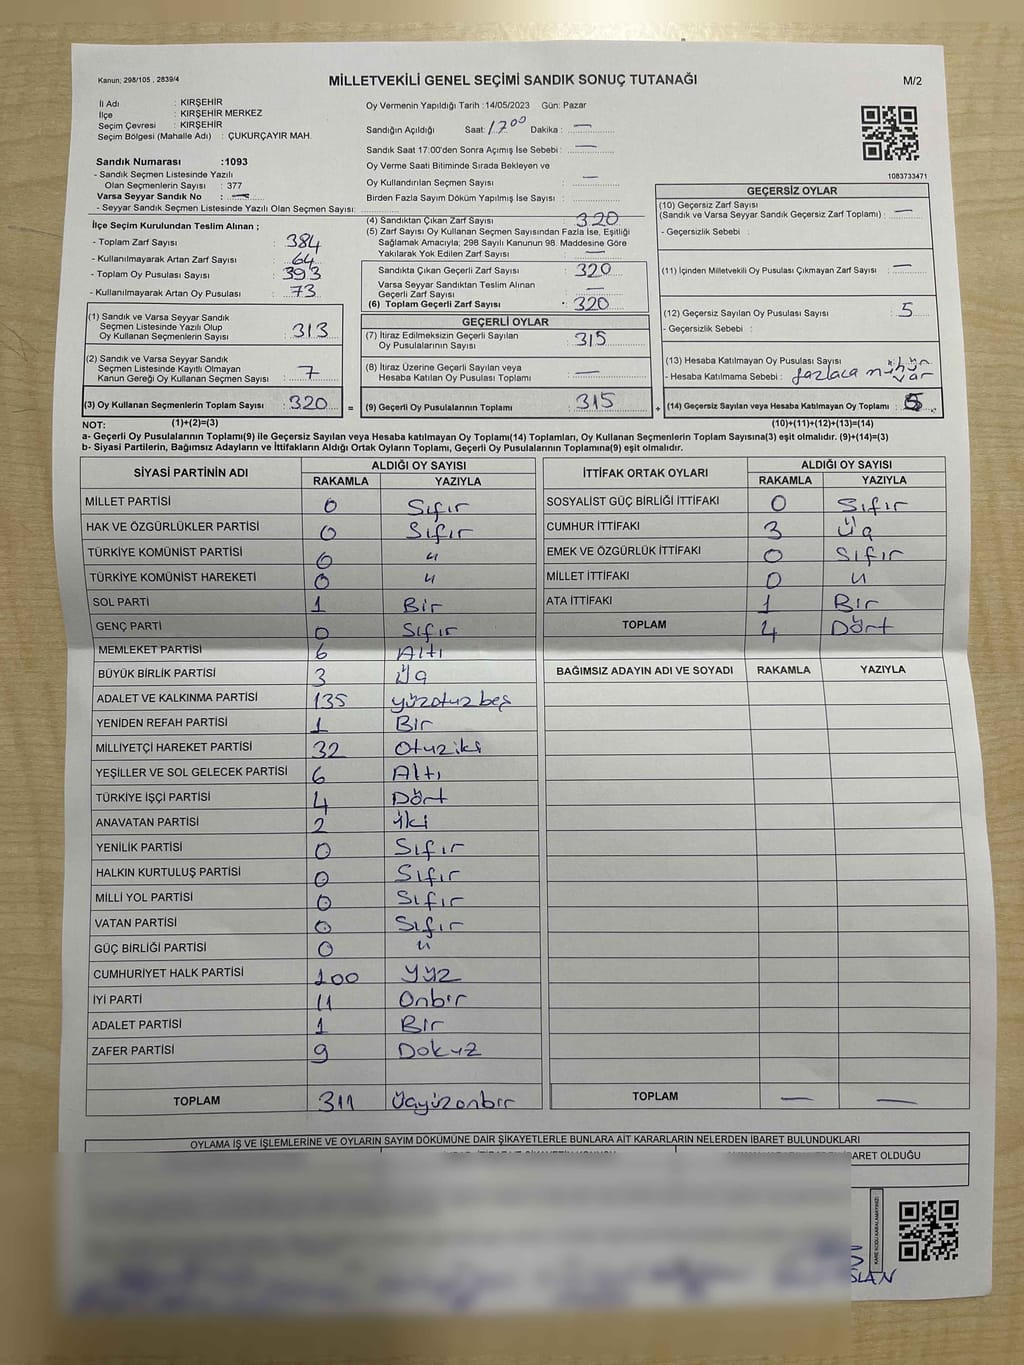 Kanun; 298/105 , 2839/4
MİLLETVEKİLİ GENEL SEÇİMİ SANDIK SONUÇ TUTANAĞI
M/2
İl Adı : KIRŞEHİR
İlçe : KIRŞEHİR MERKEZ
Seçim Çevresi : KIRŞEHİR
Seçim Bölgesi (Mahalle Adı) : ÇUKURÇAYIR MAH.
Sandık Numarası :1093
- Sandık Seçmen Listesinde Yazılı
Olan Seçmenlerin Sayısı : 377
Varsa Seyyar Sandık No : —
- Seyyar Sandık Seçmen Listesinde Yazılı Olan Seçmen Sayısı:
Oy Vermenin Yapıldığı Tarih :14/05/2023 Gün: Pazar
Sandığın Açıldığı Saat: 17 00 Dakika : —
Sandık Saat 17:00'den Sonra Açımış İse Sebebi : —
Oy Verme Saati Bitiminde Sırada Bekleyen ve
Oy Kullandırılan Seçmen Sayısı : —
Birden Fazla Sayım Döküm Yapılmış İse Sayısı :
1083733471
İlçe Seçim Kurulundan Teslim Alınan ;
- Toplam Zarf Sayısı : 384
- Kullanılmayarak Artan Zarf Sayısı : 64
- Toplam Oy Pusulası Sayısı : 393
- Kullanılmayarak Artan Oy Pusulası : 73
(1) Sandık ve Varsa Seyyar Sandık
Seçmen Listesinde Yazılı Olup
Oy Kullanan Seçmenlerin Sayısı : 313
(2) Sandık ve Varsa Seyyar Sandık
Seçmen Listesinde Kayıtlı Olmayan
Kanun Gereği Oy Kullanan Seçmen Sayısı : 7
(3) Oy Kullanan Seçmenlerin Toplam Sayısı : 320
(4) Sandıktan Çıkan Zarf Sayısı : 320
(5) Zarf Sayısı Oy Kullanan Seçmen Sayısından Fazla İse, Eşitliği
Sağlamak Amacıyla; 298 Sayılı Kanunun 98. Maddesine Göre
Yakılarak Yok Edilen Zarf Sayısı : —
Sandıkta Çıkan Geçerli Zarf Sayısı : 320
Varsa Seyyar Sandıktan Teslim Alınan
Geçerli Zarf Sayısı : —
(6) Toplam Geçerli Zarf Sayısı : 320
GEÇERLİ OYLAR
(7) İtiraz Edilmeksizin Geçerli Sayılan
Oy Pusulalarının Sayısı : 315
(8) İtiraz Üzerine Geçerli Sayılan veya
Hesaba Katılan Oy Pusulası Toplamı : —
= (9) Geçerli Oy Pusulalarının Toplamı : 315
GEÇERSİZ OYLAR
(10) Geçersiz Zarf Sayısı
(Sandık ve Varsa Seyyar Sandık Geçersiz Zarf Toplamı) : —
- Geçersizlik Sebebi :
(11) İçinden Milletvekili Oy Pusulası Çıkmayan Zarf Sayısı : —
(12) Geçersiz Sayılan Oy Pusulası Sayısı : 5
- Geçersizlik Sebebi :
(13) Hesaba Katılmayan Oy Pusulası Sayısı :
- Hesaba Katılmama Sebebi : fazlaca mühür var
+ (14) Geçersiz Sayılan veya Hesaba Katılmayan Oy Toplamı : 5
NOT: (1)+(2)=(3) (10)+(11)+(12)+(13)=(14)
a- Geçerli Oy Pusulalarının Toplamı(9) ile Geçersiz Sayılan veya Hesaba katılmayan Oy Toplamı(14) Toplamları, Oy Kullanan Seçmenlerin Toplam Sayısına(3) eşit olmalıdır. (9)+(14)=(3)
b- Siyasi Partilerin, Bağımsız Adayların ve İttifakların Aldığı Ortak Oyların Toplamı, Geçerli Oy Pusulalarının Toplamına(9) eşit olmalıdır.
SİYASİ PARTİNİN ADI ALDIĞI OY SAYISI
RAKAMLA YAZIYLA
MİLLET PARTİSİ 0 Sıfır
HAK VE ÖZGÜRLÜKLER PARTİSİ 0 Sıfır
TÜRKİYE KOMÜNİST PARTİSİ 0 "
TÜRKİYE KOMÜNİST HAREKETİ 0 "
SOL PARTİ 1 Bir
GENÇ PARTİ 0 Sıfır
MEMLEKET PARTİSİ 6 Altı
BÜYÜK BİRLİK PARTİSİ 3 Üç
ADALET VE KALKINMA PARTİSİ 135 yüzotuzbeş
YENİDEN REFAH PARTİSİ 1 Bir
MİLLİYETÇİ HAREKET PARTİSİ 32 Otuziki
YEŞİLLER VE SOL GELECEK PARTİSİ 6 Altı
TÜRKİYE İŞÇİ PARTİSİ 4 Dört
ANAVATAN PARTİSİ 2 iki
YENİLİK PARTİSİ 0 Sıfır
HALKIN KURTULUŞ PARTİSİ 0 Sıfır
MİLLİ YOL PARTİSİ 0 Sıfır
VATAN PARTİSİ 0 Sıfır
GÜÇ BİRLİĞİ PARTİSİ 0 "
CUMHURİYET HALK PARTİSİ 100 Yüz
İYİ PARTİ 11 Onbir
ADALET PARTİSİ 1 Bir
ZAFER PARTİSİ 9 Dokuz
TOPLAM 311 Üçyüzonbir
İTTİFAK ORTAK OYLARI ALDIĞI OY SAYISI
RAKAMLA YAZIYLA
SOSYALİST GÜÇ BİRLİĞİ İTTİFAKI 0 Sıfır
CUMHUR İTTİFAKI 3 Üç
EMEK VE ÖZGÜRLÜK İTTİFAKI 0 Sıfır
MİLLET İTTİFAKI 0 "
ATA İTTİFAKI 1 Bir
TOPLAM 4 Dört
BAĞIMSIZ ADAYIN ADI VE SOYADI RAKAMLA YAZIYLA
TOPLAM — —
OYLAMA İŞ VE İŞLEMLERİNE VE OYLARIN SAYIM DÖKÜMÜNE DAİR ŞİKAYETLERLE BUNLARA AİT KARARLARIN NELERDEN İBARET BULUNDUKLARI
OLDUĞU
KARE KODU KARALAMAYINIZ!